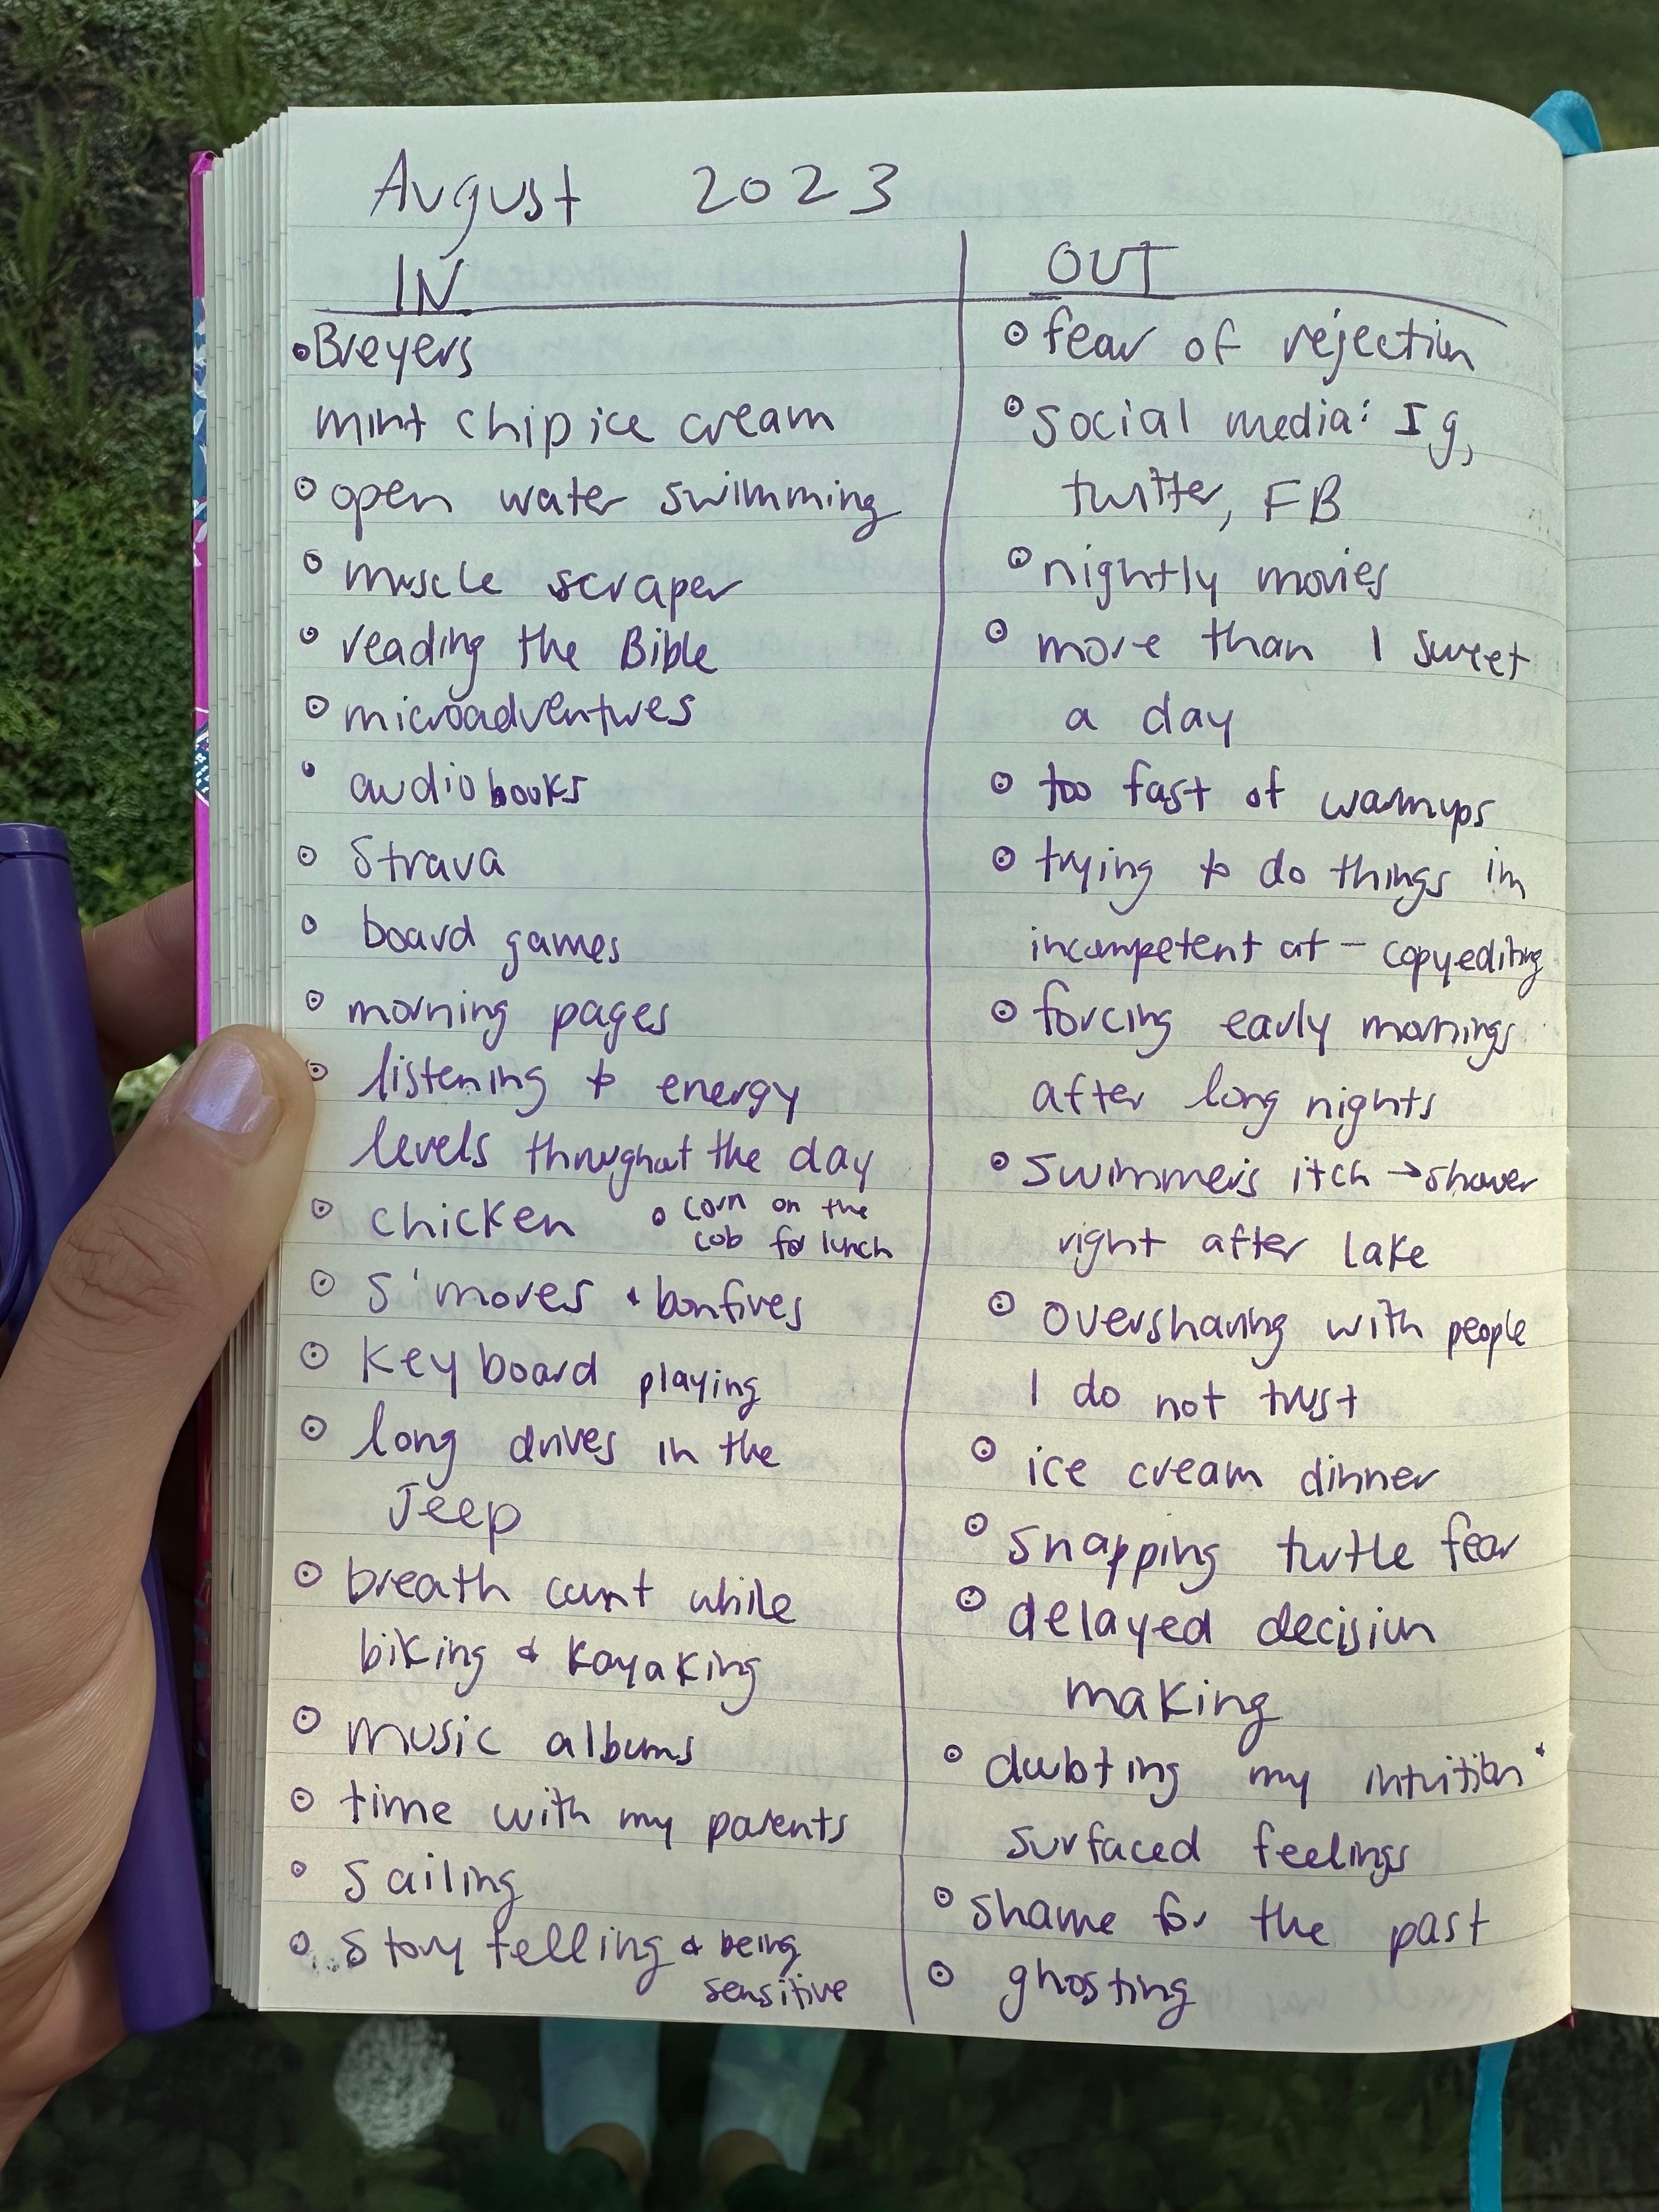 August 2023
IN
• Breyers
mint chip ice cream
• open water swimming
• muscle scraper
• reading the Bible
• microadventures
• audiobooks
• Strava
• board games
• morning pages
• listening to energy
levels throughout the day
• chicken • corn on the
cob for lunch
• S'mores & bonfires
• Keyboard playing
• long drives in the
Jeep
• breath count while
biking & kayaking
• music albums
• time with my parents
• Sailing
• Story telling & being
sensitive
OUT
• fear of rejection
• social media: Ig,
twitter, FB
• nightly movies
• more than 1 sweet
a day
• too fast of warmups
• trying to do things im
incompetent at - copyediting
• forcing early mornings
after long nights
• swimmers itch → shower
right after lake
• oversharing with people
I do not trust
• ice cream dinner
• snapping turtle fear
• delayed decision
making
• doubting my intuition &
surfaced feelings
• shame for the past
• ghosting